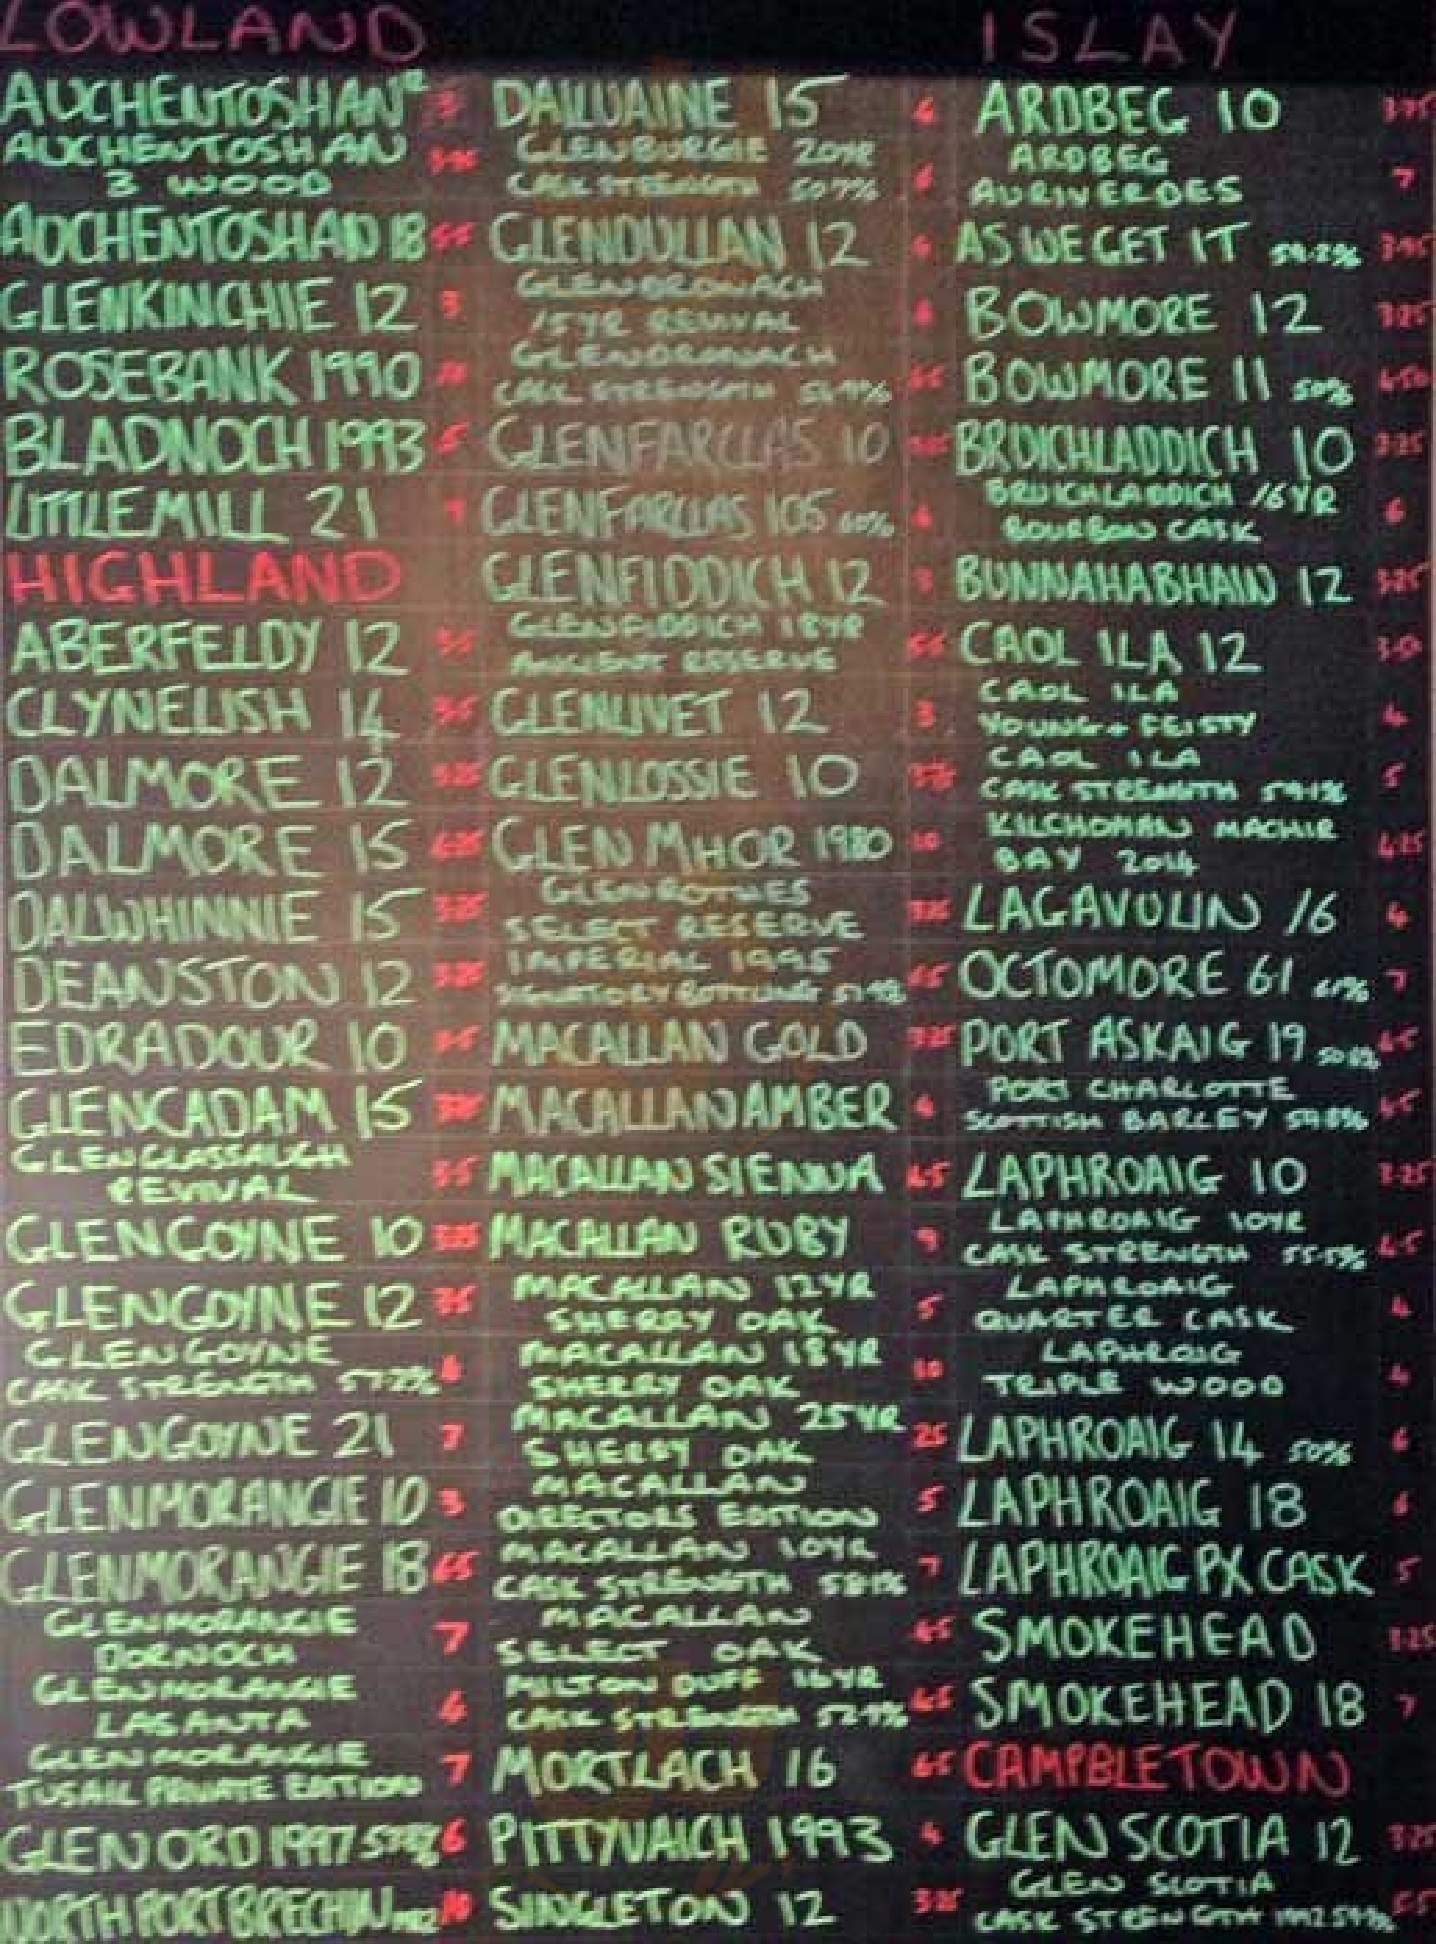 LOWLAND
AUCHENTOSHAN
AUCHENTOSHAN 3.95
3 WOOD
AUCHENTOSHAN 18
GLENKINCHIE 12 3
ROSEBANK 1990
BLADNOCH 1993 5
LITTLEMILL 21 7
HIGHLAND
ABERFELDY 12 3.5
CLYNELISH 14 3.5
DALMORE 12 3.25
DALMORE 15 6.25
DALWHINNIE 15 3.25
DEANSTON 12 3.25
EDRADOUR 10 3.5
GLENCADAM 15
GLENGLASSAUGH 3.5
REVIVAL
GLENGOYNE 10 3.25
GLENGOYNE 12 3.5
GLENGOYNE
CASK STRENGTH 57.2%
GLENGOYNE 21 7
GLENMORANGIE 10 3
GLENMORANGIE 18 6.5
GLENMORANGIE 7
DORNOCH
GLENMORANGIE
LASANTA
GLENMORANGIE 7
TUSAIL PRIVATE EDITION
GLEN ORD 1997 6
NORTH PORT BRECHIN 10
DAILUAINE 15
GLENBURGIE 20YR
CASK STRENGTH
GLENDULLAN 12
GLENDRONACH
15YR REVIVAL
GLENDRONACH
CASK STRENGTH
GLENFARCLAS 10
GLENFARCLAS 105 60%
GLENFIDDICH 12 3
GLENFIDDICH 18YR
ANCIENT RESERVE
GLENLIVET 12 3
GLENLOSSIE 10
GLEN MHOR 1980 10
GLENROTHES
SELECT RESERVE
IMPERIAL 1995 6.5
SIGNATORY BOTTLING
MACALLAN GOLD 3.25
MACALLAN AMBER 4
MACALLAN SIENNA 6.5
MACALLAN RUBY 9
MACALLAN 12YR 5
SHERRY OAK
MACALLAN 18YR 10
SHERRY OAK
MACALLAN 25YR 25
SHERRY OAK
MACALLAN 5
DIRECTORS EDITION
MACALLAN 10YR 7
CASK STRENGTH 58.1%
MACALLAN
SELECT OAK
MILTON DUFF 16YR
CASK STRENGTH 52.9%
MORTLACH 16 6.5
PITTYVAICH 1993
SINGLETON 12 3.25
ISLAY
ARDBEG 10 3.75
ARDBEG 7
AURIVERDES
AS WE GET IT 3.95
BOWMORE 12 3.25
BOWMORE 11 50% 6.50
BRUICHLADDICH 10 3.25
BRUICHLADDICH 16YR 6
BOURBON CASK
BUNNAHABHAIN 12 3.25
CAOL ILA 12 3.50
CAOL ILA 4
YOUNG + FEISTY
CAOL ILA 5
CASK STRENGTH 59.1%
KILCHOMAN MACHIR
BAY 2014
LAGAVULIN 16 4
OCTOMORE 61 61% 7
PORT ASKAIG 19
PORT CHARLOTTE
SCOTTISH BARLEY
LAPHROAIG 10 3.25
LAPHROAIG 10YR
CASK STRENGTH 55.5%
LAPHROAIG 4
QUARTER CASK
LAPHROIG 4
TRIPLE WOOD
LAPHROAIG 14 50% 6
LAPHROAIG 18 6
LAPHROAIG PX CASK 5
SMOKEHEAD 3.25
SMOKEHEAD 18 7
CAMPBLETOWN
GLEN SCOTIA 12 3.25
GLEN SCOTIA 5.5
CASK STRENGTH 1992